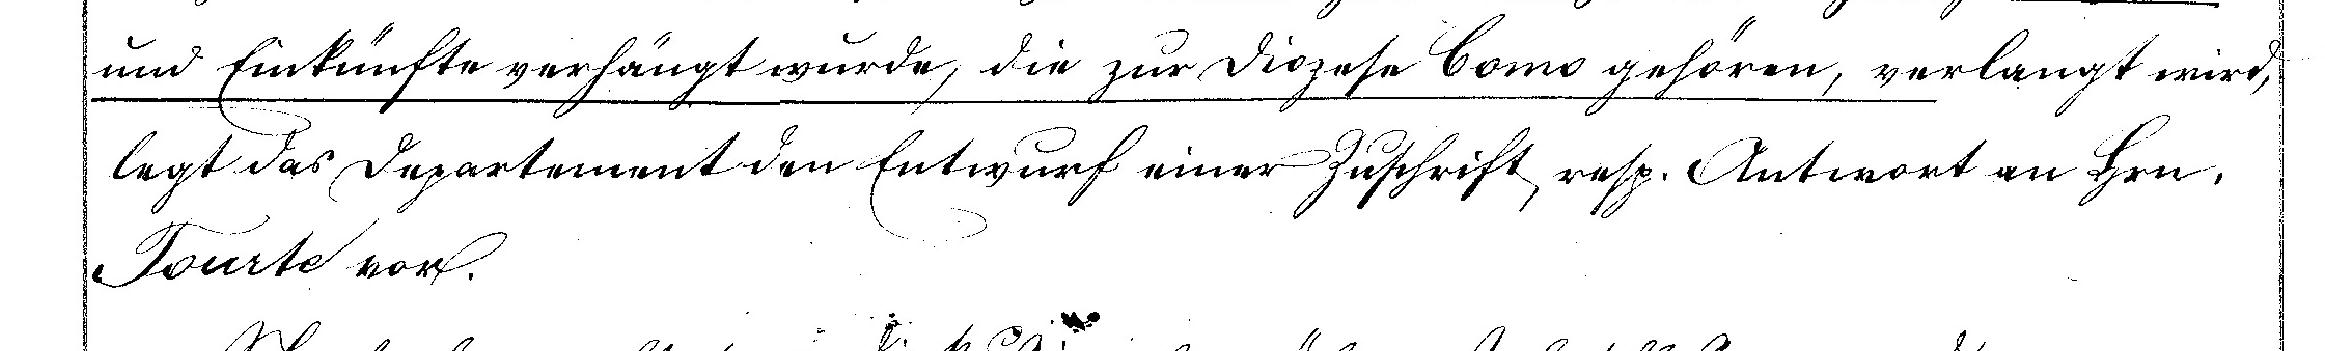 und Einkünfte verhängt wurde, die zur Diözese Como gehören, verlangt wird,
legt das Departement den Entwurf einer Zuschrift, resp. Antwort an Hrn.
Tourte vor.